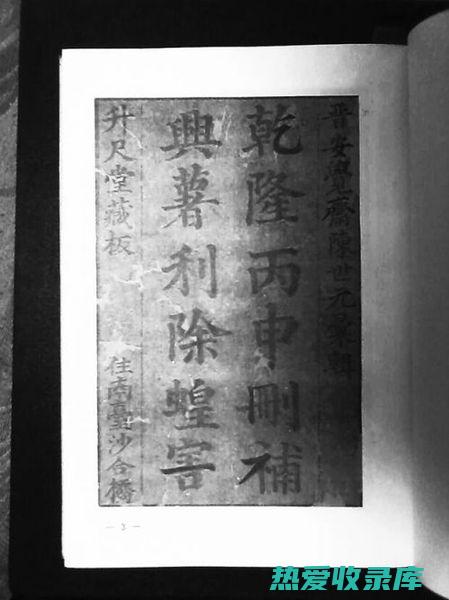 晋安覺齋陳世元彙輯
乾隆丙申刪補
興薯利除蝗害
升尺堂藏板 住南臺沙合橋
— 3 —
热爱收录库